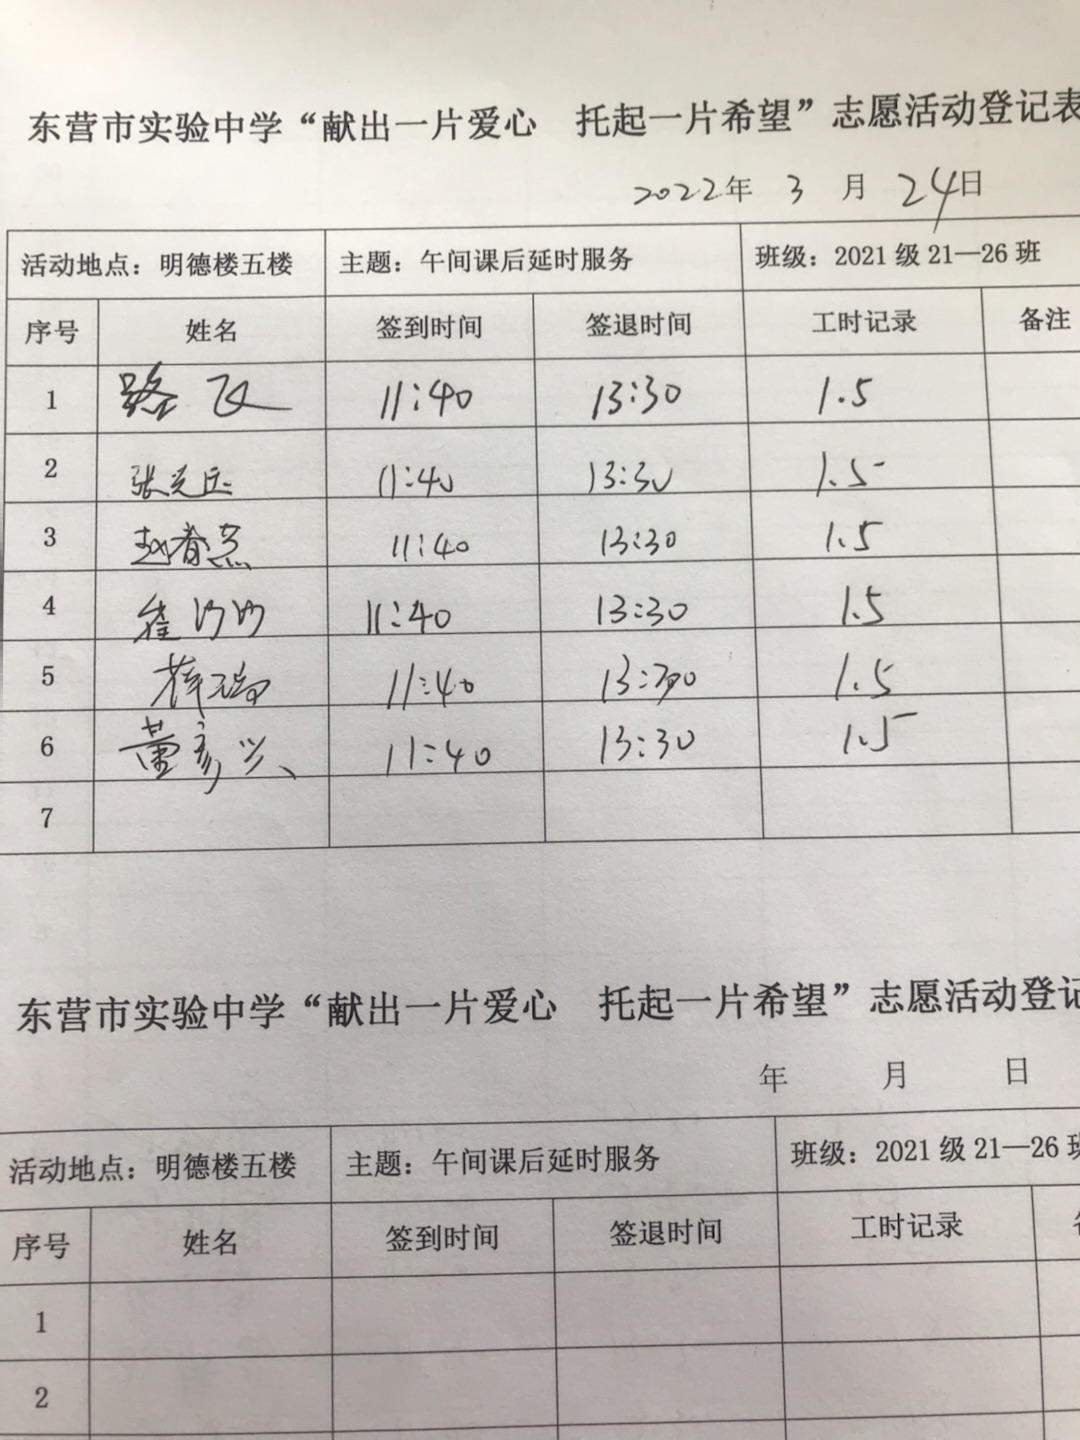 东营市实验中学“献出一片爱心 托起一片希望”志愿活动登记表
2022年 3 月 24日
活动地点：明德楼五楼 主题：午间课后延时服务 班级：2021 级 21—26 班
序号 姓名 签到时间 签退时间 工时记录 备注
1 路飞 11:40 13:30 1.5
2 张 11:40 13:30 1.5
3 赵春 11:40 13:30 1.5
4 崔 11:40 13:30 1.5
5 薛 11:40 13:30 1.5
6 董彦兴 11:40 13:30 1.5
7
东营市实验中学“献出一片爱心 托起一片希望”志愿活动登记
年 月 日
活动地点：明德楼五楼 主题：午间课后延时服务 班级：2021 级 21—26 班
序号 姓名 签到时间 签退时间 工时记录
1
2